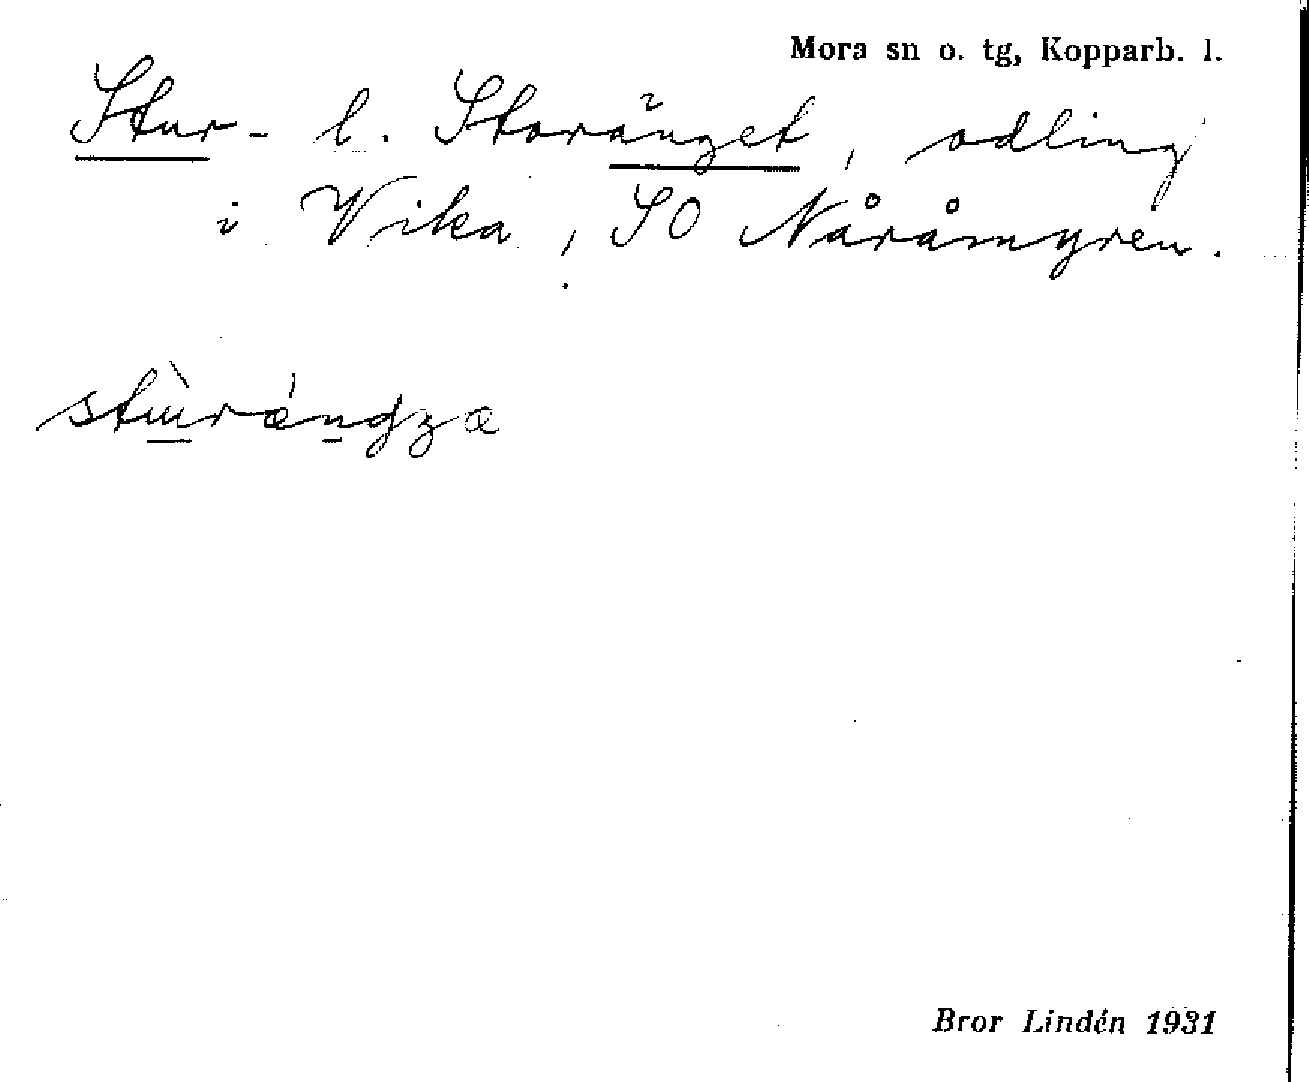 Mora sn o. tg, Kopparb. l.
Stur- l. Storänget, odling
i Vika, SO Nåråmyren.
stùrǽngʒæ
Bror Lindén 1931